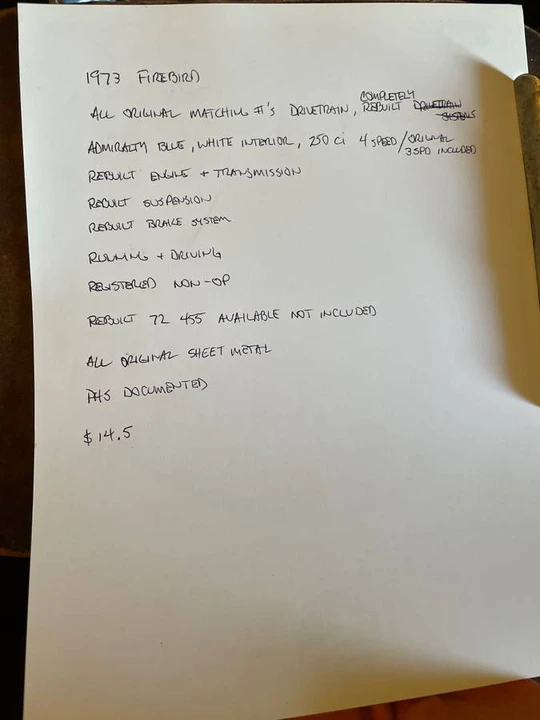 1973 FIREBIRD
ALL ORIGINAL MATCHING #'S DRIVETRAIN, COMPLETELY REBUILT DRIVETRAIN SYSTEMS
ADMIRALTY BLUE, WHITE INTERIOR, 250 Ci 4 SPEED/ORIGINAL 3 SPD INCLUDED
REBUILT ENGINE + TRANSMISSION
REBUILT SUSPENSION
REBUILT BRAKE SYSTEM
RUNNING + DRIVING
REGISTERED NON-OP
REBUILT 72 455 AVAILABLE NOT INCLUDED
ALL ORIGINAL SHEET METAL
PHS DOCUMENTED
$14.5